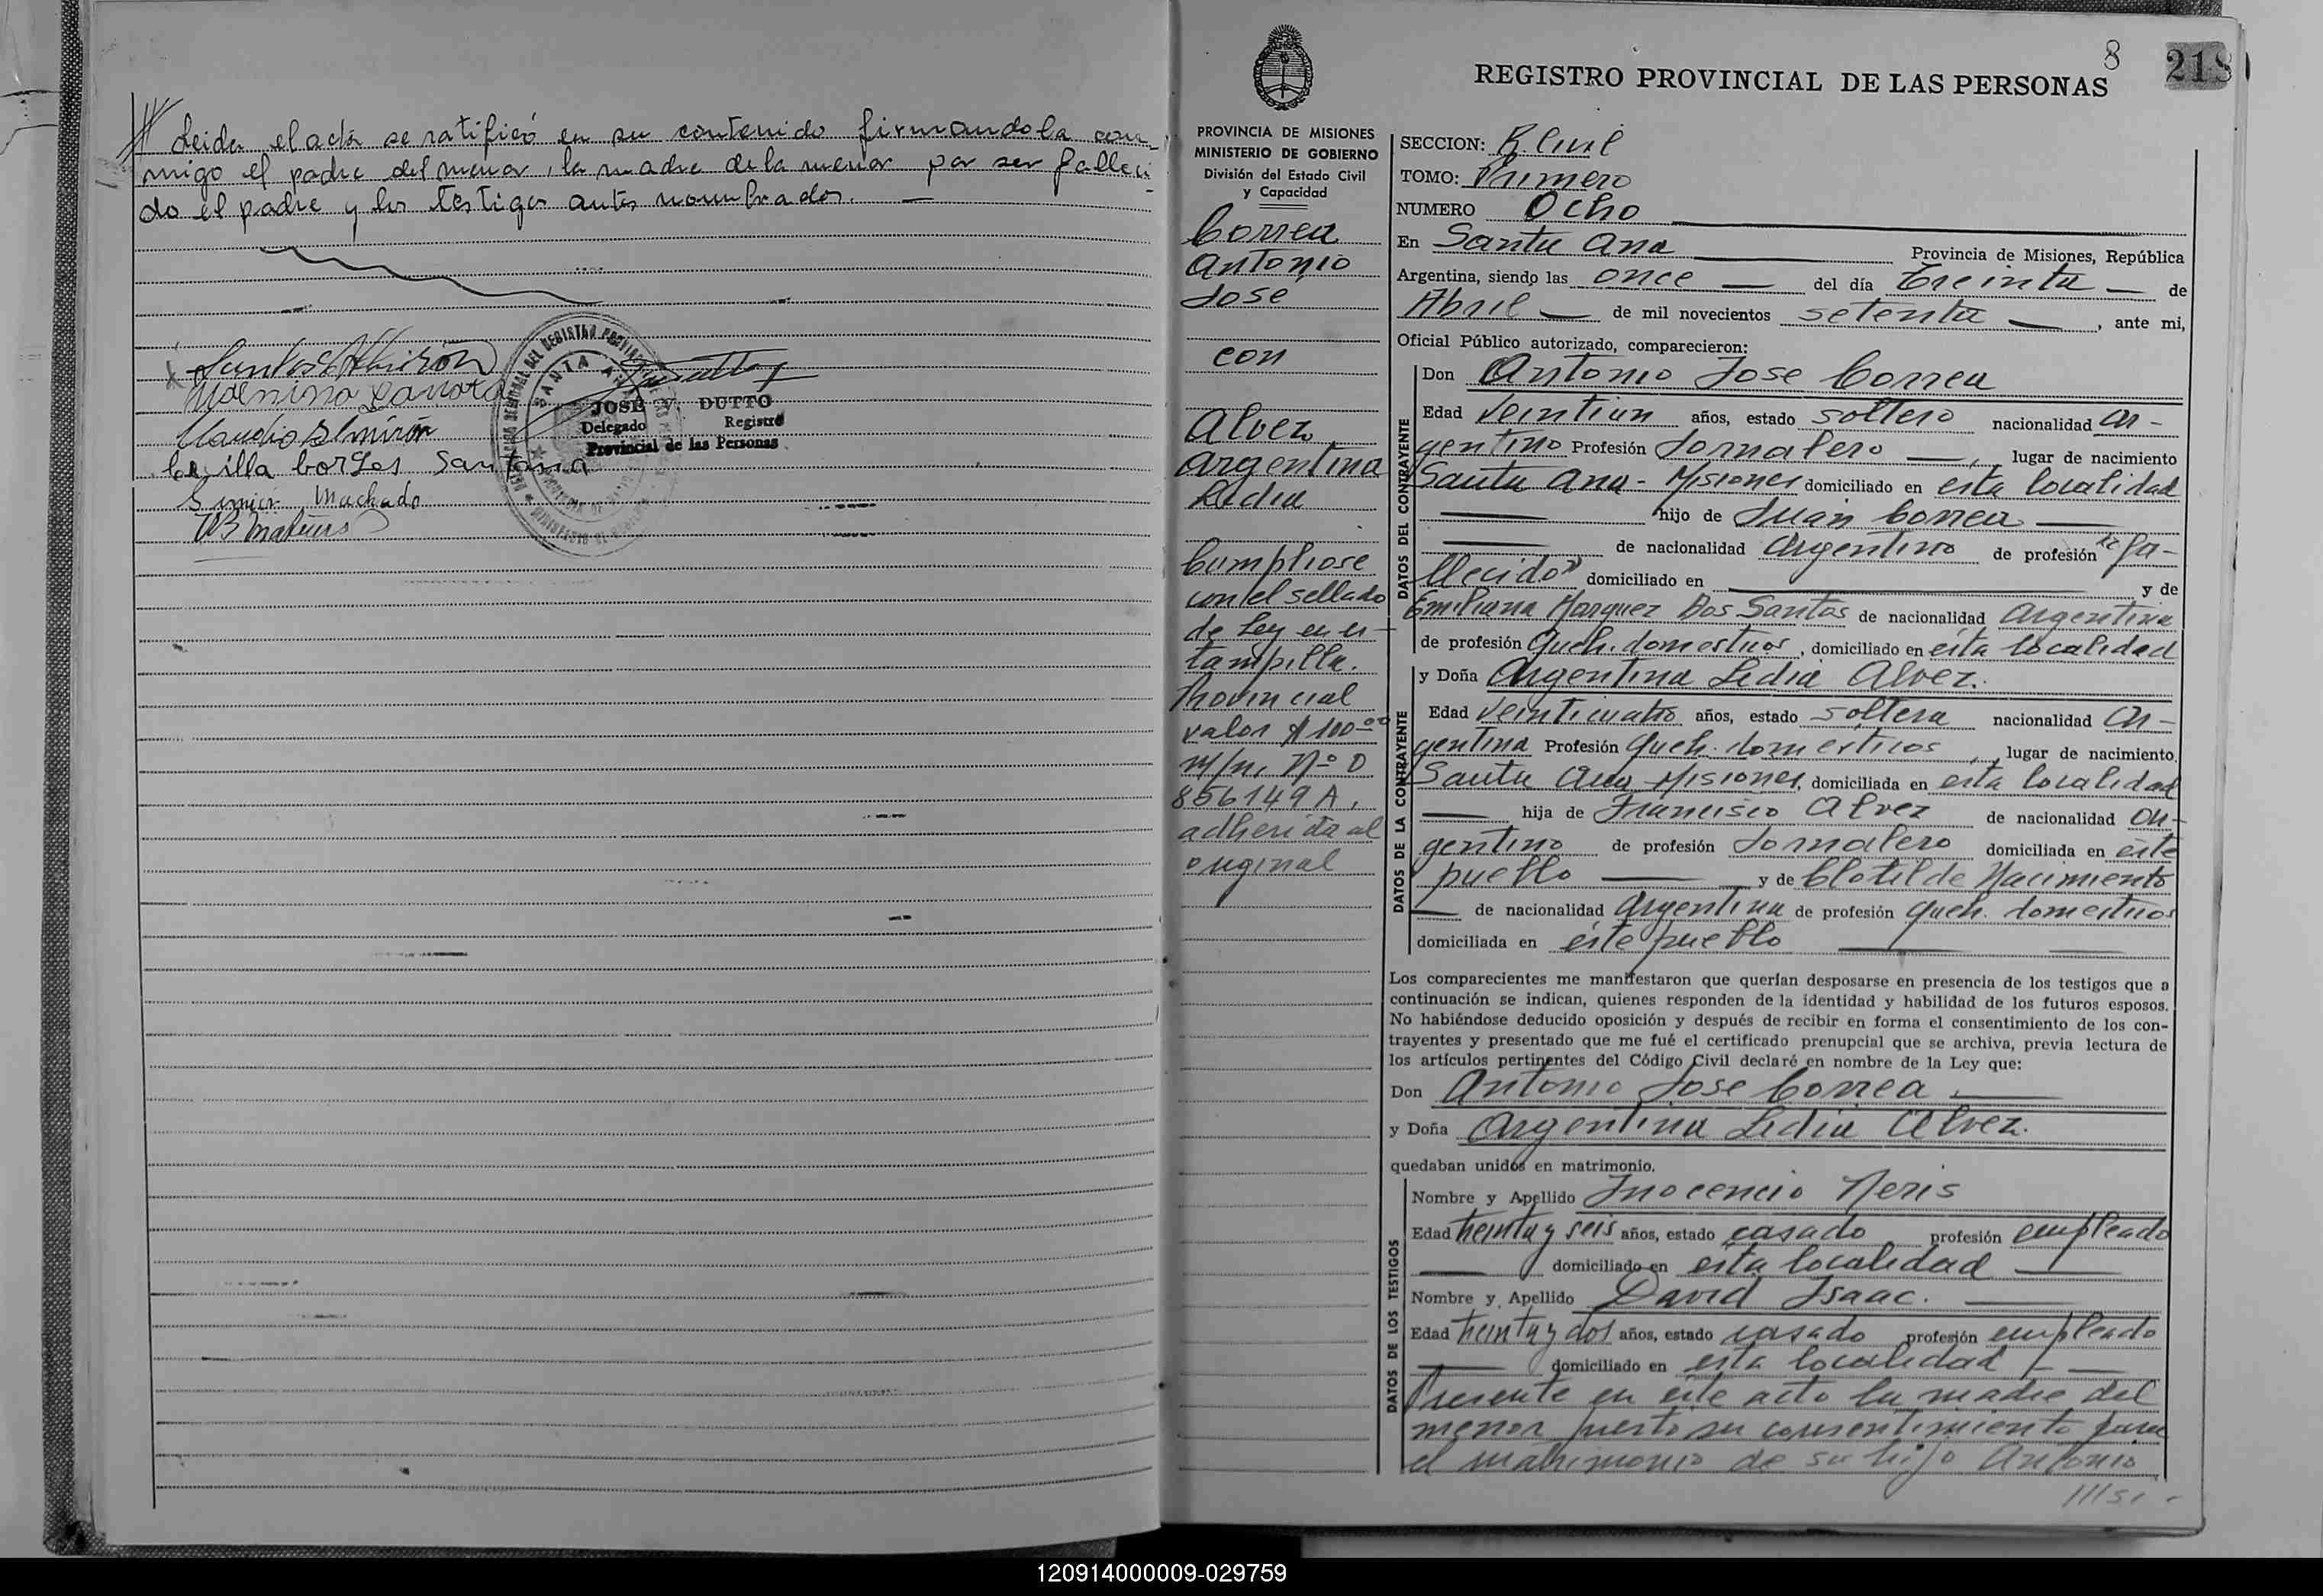 Leida el acta se ratificó en su contenido firmandola con-
migo el padre del menor, la madre de la menor por ser falleci-
do el padre y los testigos antes nombrados.
Claudio Almirón
JOSE V. DUTTO
Delegado Registro
Provincial de las Personas
SANTA ANA
borges Santana
Machado
8
218
REGISTRO PROVINCIAL DE LAS PERSONAS
PROVINCIA DE MISIONES
MINISTERIO DE GOBIERNO
División del Estado Civil
y Capacidad
Correa
Antonio
Jose
con
Alvez
Argentina
Ledia
Cumpliose
con el sellado
de Ley en es-
tampilla.
Provincial
valor $ 100.00
m/n. Nº D
856149 A.
adherida al
original
SECCION: R. Civil
TOMO: Primero
NUMERO Ocho
En Santa Ana Provincia de Misiones, República
Argentina, siendo las once del día Treinta de
Abril de mil novecientos setenta, ante mi,
Oficial Público autorizado, comparecieron:
DATOS DEL CONTRAYENTE
Don Antonio Jose Correa
Edad veintiun años, estado soltero nacionalidad ar-
gentino Profesión Jornalero, lugar de nacimiento
Santa Ana - Misiones domiciliado en esta localidad
hijo de Juan Correa
de nacionalidad Argentino de profesión "fa-
llecido" domiciliado en y de
Emiliana Marquez Dos Santos de nacionalidad argentina
de profesión Queh. domesticos, domiciliado en esta localidad
DATOS DE LA CONTRAYENTE
y Doña Argentina Ledia Alvez.
Edad veinticuatro años, estado soltera nacionalidad ar-
gentina Profesión Queh. domesticos, lugar de nacimiento
Santa Ana - Misiones, domiciliada en esta localidad
hija de Francisco Alvez de nacionalidad ar-
gentino de profesión Jornalero domiciliada en este
pueblo y de Clotilde Nacimiento
de nacionalidad argentina de profesión Queh. domesticos
domiciliada en este pueblo
Los comparecientes me manifestaron que querían desposarse en presencia de los testigos que a
continuación se indican, quienes responden de la identidad y habilidad de los futuros esposos.
No habiéndose deducido oposición y después de recibir en forma el consentimiento de los con-
trayentes y presentado que me fué el certificado prenupcial que se archiva, previa lectura de
los artículos pertinentes del Código Civil declaré en nombre de la Ley que:
Don Antonio Jose Correa
y Doña Argentina Ledia Alvez.
quedaban unidos en matrimonio.
DATOS DE LOS TESTIGOS
Nombre y Apellido Inocencio Neris
Edad treinta y seis años, estado casado profesión empleado
domiciliado en esta localidad
Nombre y Apellido David Isaac.
Edad treinta y dos años, estado casado profesión empleado
domiciliado en esta localidad
Presente en este acto la madre del
menor presto su consentimiento para
el matrimonio de su hijo Antonio
120914000009-029759